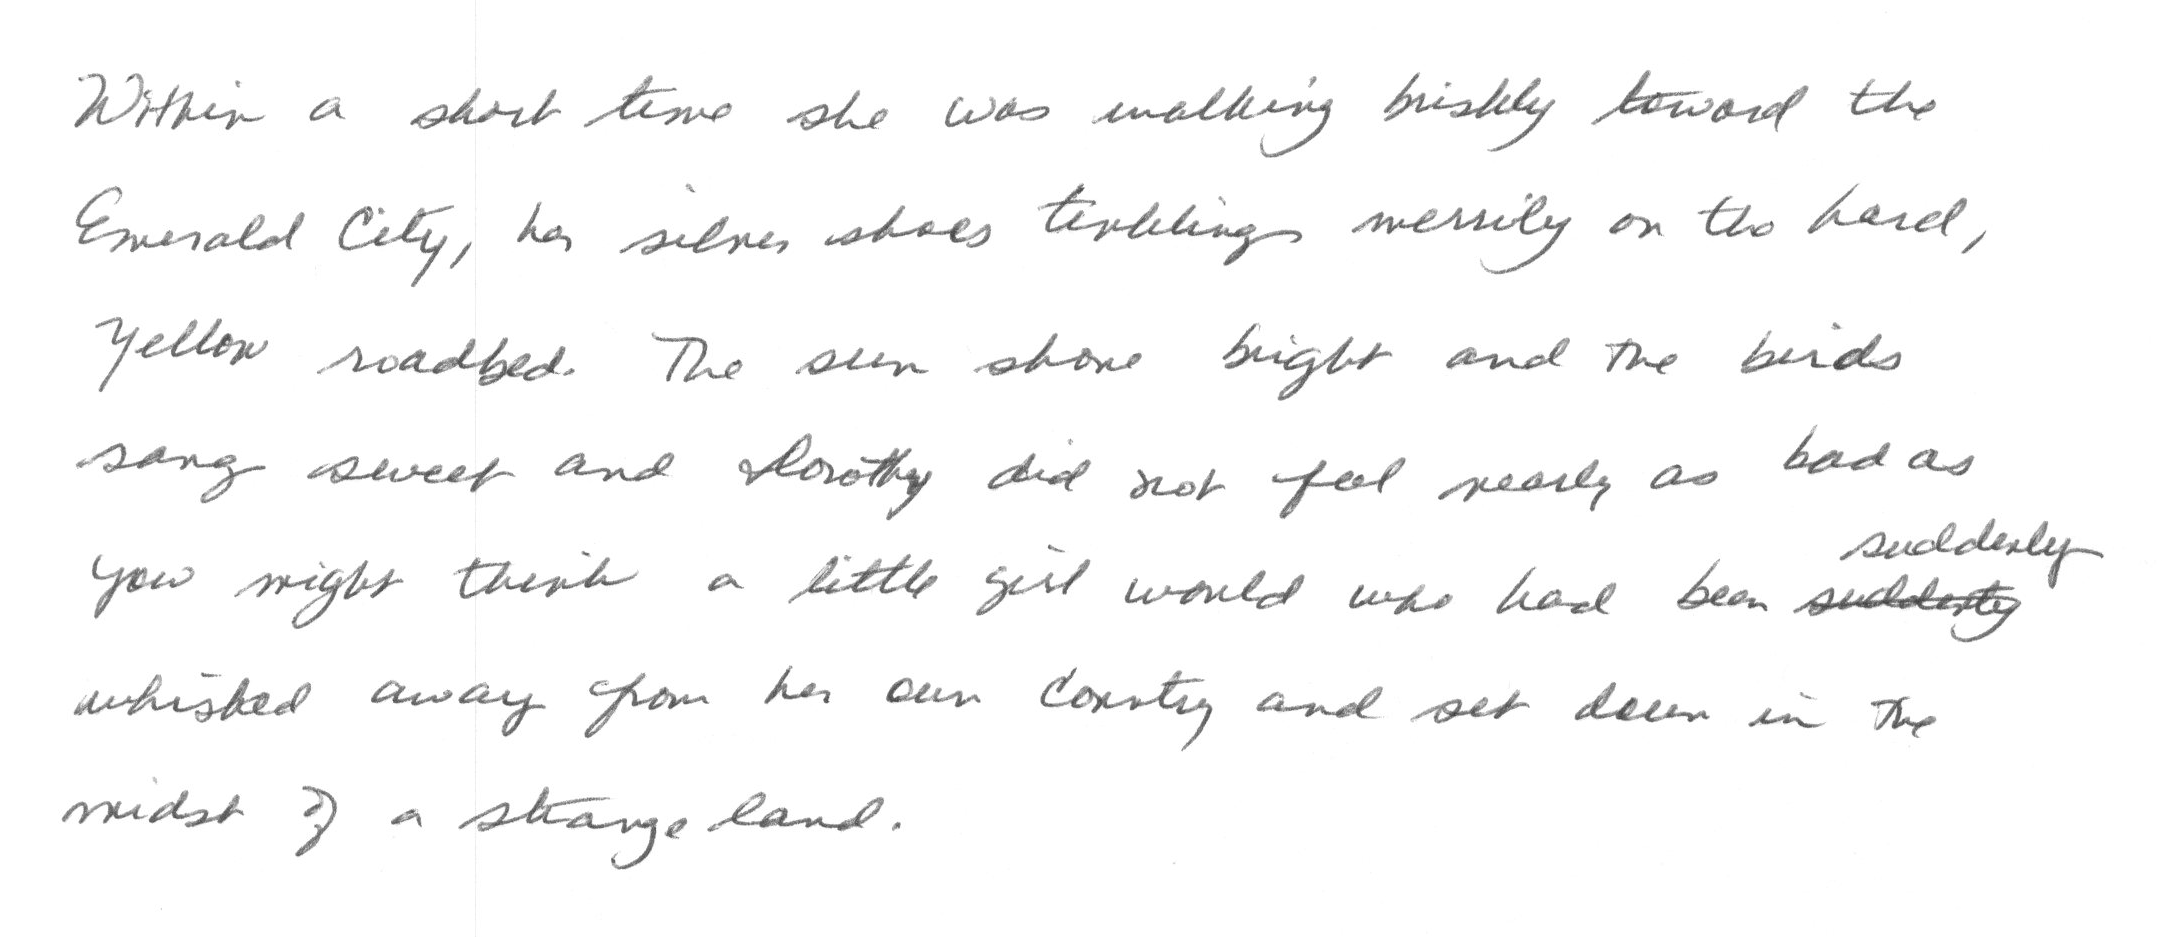 Within a short time she was walking briskly toward the
Emerald City, her silver shoes tinkling merrily on the hard,
yellow roadbed. The sun shone bright and the birds
sang sweet and Dorothy did not feel nearly as bad as
you might think a little girl would who had been suddenly suddenly
whisked away from her own country and set down in the
midst of a strange land.